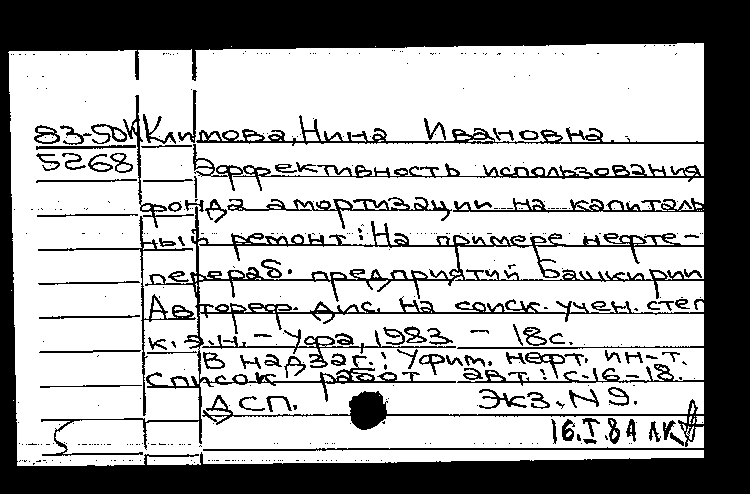 83-50К Климова, Нина Ивановна.
5268 Эффективность использования
фонда амортизации на капиталь
ный ремонт: На примере нефте-
перераб. предприятий Башкирии
Автореф. дис. на соиск. учен. степ
к.э.н. - Уфа, 1983 - 18с.
В надзаг.: Уфим. нефт. ин-т.
Список работ авт.: с.16-18.
ДСП. Экз. N 9.
5 16.I.84 ЛК